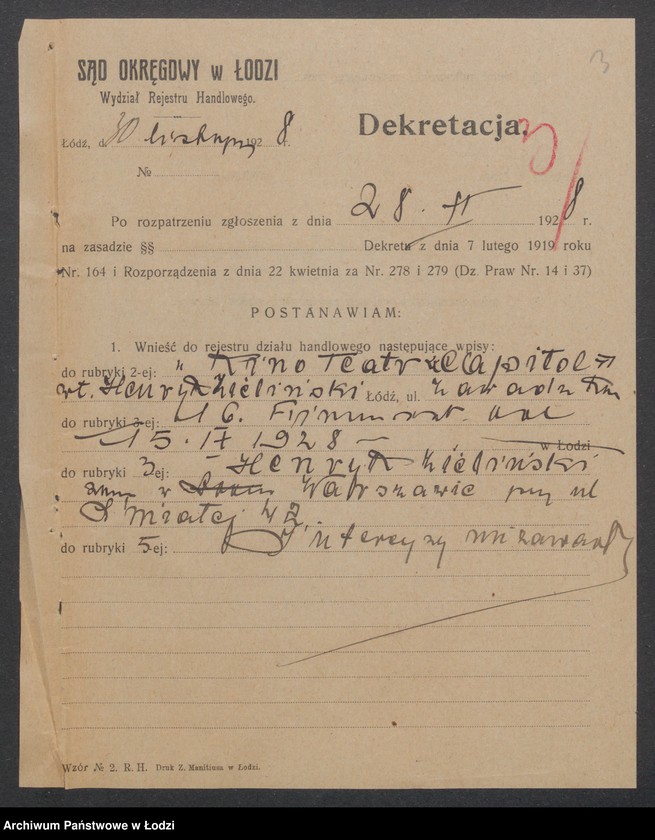 3
SĄD OKRĘGOWY w ŁODZI
Wydział Rejestru Handlowego.
Dekretacja.
Łódź, d. 30 listopad 1928 r.
№
Po rozpatrzeniu zgłoszenia z dnia 28. XI 1928 r.
na zasadzie §§ Dekretu z dnia 7 lutego 1919 roku
Nr. 164 i Rozporządzenia z dnia 22 kwietnia za Nr. 278 i 279 (Dz. Praw Nr. 14 i 37)
POSTANAWIAM:
1. Wnieść do rejestru działu handlowego następujące wpisy:
do rubryki 2-ej: "Kino Teatr "Capitol"
wł. Henryk Zieliński Łódź, ul. Zawadzka
do rubryki 3-ej: 16. Firma istn. od
15. IX 1928 w Łodzi
do rubryki 3 ej: Henryk Zieliński
zam. w Warszawie przy ul
Śmiałej 42.
do rubryki 5-ej: Intercyzy nie zawarł
Wzór № 2. R. H. Druk Z. Manitiusa w Łodzi.
Archiwum Państwowe w Łodzi